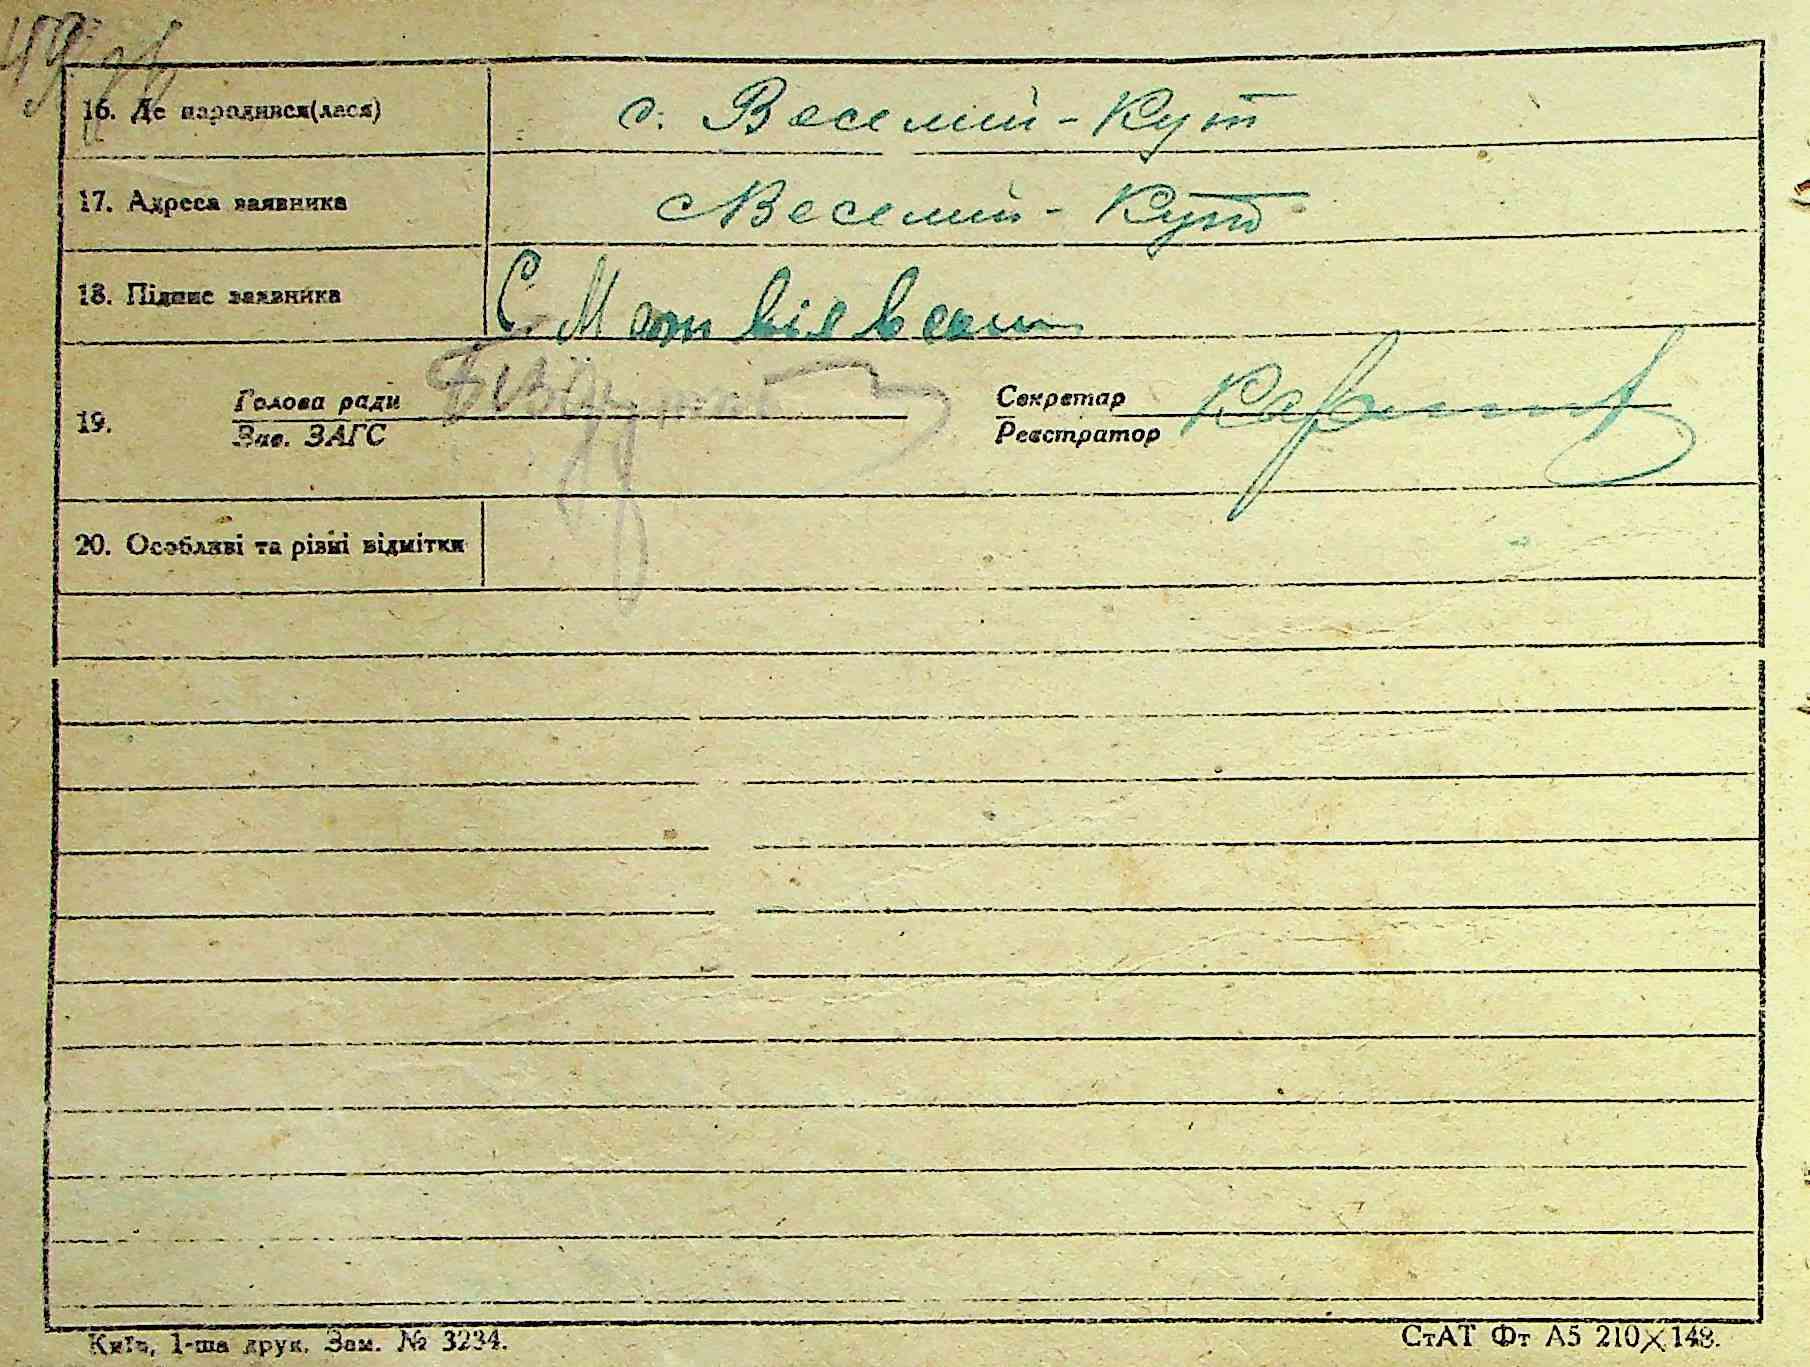 16. Де народився(лася) с. Веселий-Кут
17. Адреса заявника с Веселий-Кут
18. Підпис заявника С. Матвієвский
19. Голова ради Секретар
Зав. ЗАГС Реєстратор
20. Особливі та різні відмітки
Київ, 1-ша друк. Зам. № 3234.
СтАТ Фт А5 210×148.